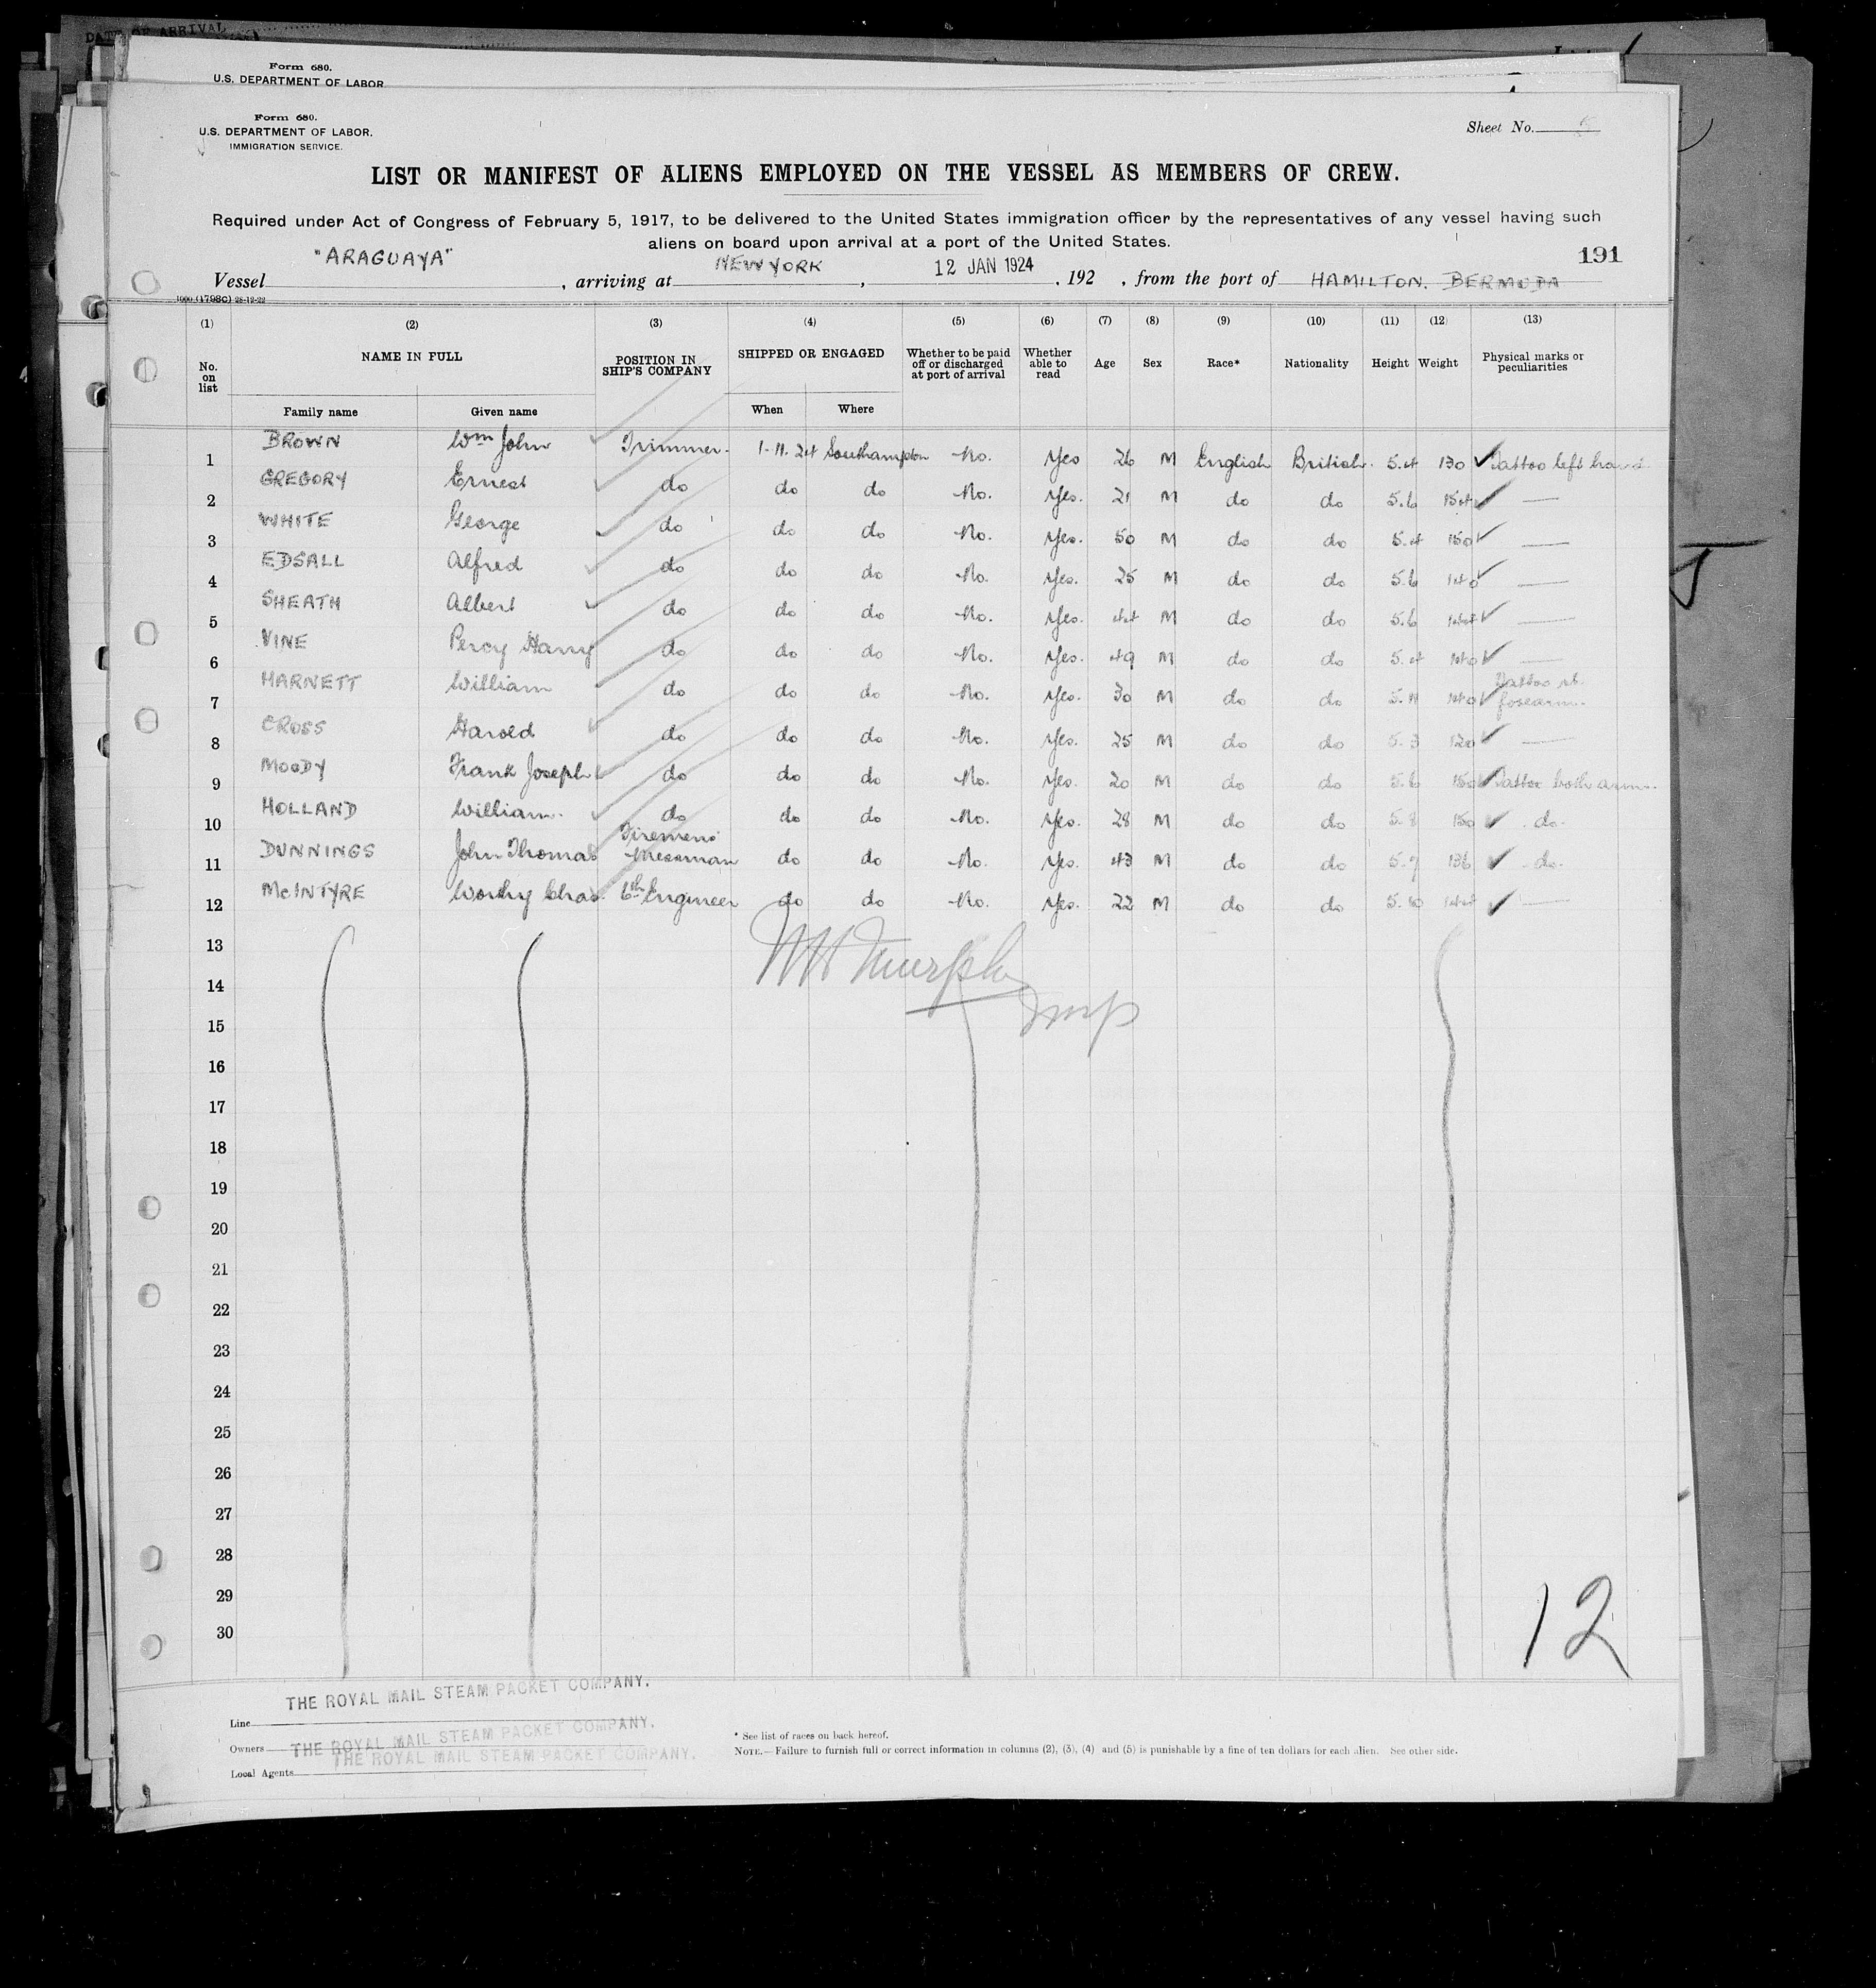 DATE OF ARRIVAL
Form 680.
U.S. DEPARTMENT OF LABOR
Form 680.
U.S. DEPARTMENT OF LABOR.
IMMIGRATION SERVICE.
Sheet No.
LIST OR MANIFEST OF ALIENS EMPLOYED ON THE VESSEL AS MEMBERS OF CREW.
Required under Act of Congress of February 5, 1917, to be delivered to the United States immigration officer by the representatives of any vessel having such
aliens on board upon arrival at a port of the United States.
191
Vessel "ARAGUAYA", arriving at NEW YORK, 12 JAN 1924, 192 , from the port of HAMILTON. BERMUDA
1000 (1798C) 28-12-22
(1) (2) (3) (4) (5) (6) (7) (8) (9) (10) (11) (12) (13)
No. on list NAME IN FULL POSITION IN SHIP'S COMPANY SHIPPED OR ENGAGED Whether to be paid off or discharged at port of arrival Whether able to read Age Sex Race* Nationality Height Weight Physical marks or peculiarities
Family name Given name When Where
1 BROWN Wm John Trimmer. 1-11.24 Southampton No. Yes 26 M English British. 5.4 130 Tattoo left hand
2 GREGORY Ernest do do do No. Yes. 21 M do do 5.6 154 —
3 WHITE George do do do No. Yes. 50 M do do 5.4 150 —
4 EDSALL Alfred do do do No. Yes. 25 M do do 5.6 140 —
5 SHEATH Albert do do do No. Yes. 44 M do do 5.6 144 —
6 VINE Percy Harry do do do No. Yes. 49 M do do 5.4 140 —
7 HARNETT William do do do No. Yes. 30 M do do 5.11 140 Tattoo rt. forearm.
8 CROSS Harold do do do No. Yes. 25 M do do 5.3 120 —
9 MOODY Frank Joseph do do do No. Yes. 20 M do do 5.6 150 Tattoo both arms.
10 HOLLAND William. do do do No. Yes. 28 M do do 5.8 150 do.
11 DUNNINGS John Thomas Firemens' Messman do do No. Yes. 43 M do do 5.7 136 do.
12 McINTYRE Worthy Chas. 6th Engineer do do No. Yes. 22 M do do 5.10 144 —
13
WH Murphy
14
15
16
17
18
19
20
21
22
23
24
25
26
27
28
29
30
12
THE ROYAL MAIL STEAM PACKET COMPANY.
Line
Owners THE ROYAL MAIL STEAM PACKET COMPANY.
THE ROYAL MAIL STEAM PACKET COMPANY.
Local Agents
* See list of races on back hereof.
NOTE.—Failure to furnish full or correct information in columns (2), (3), (4) and (5) is punishable by a fine of ten dollars for each alien. See other side.